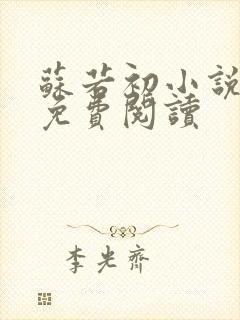 蘇若初小說
免費閱讀
李光齊